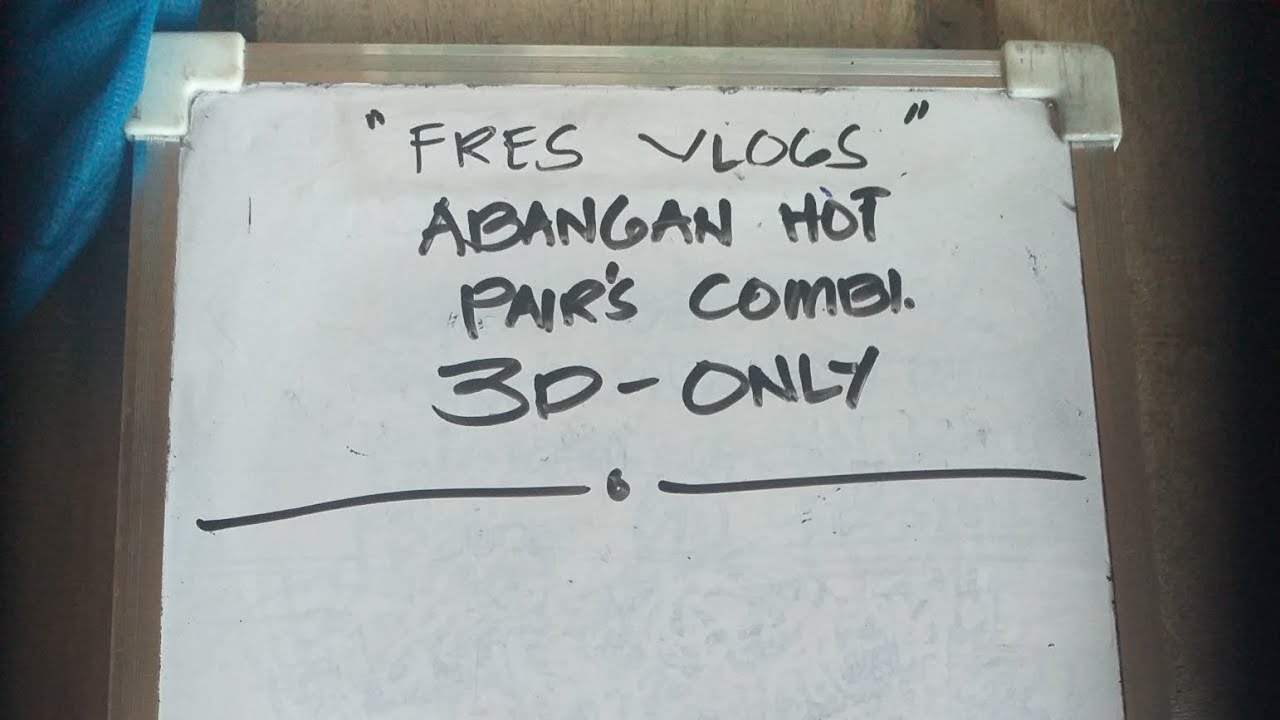 "FRES VLOGS"
ABANGAN HOT
PAIR'S COMBI.
3D-ONLY